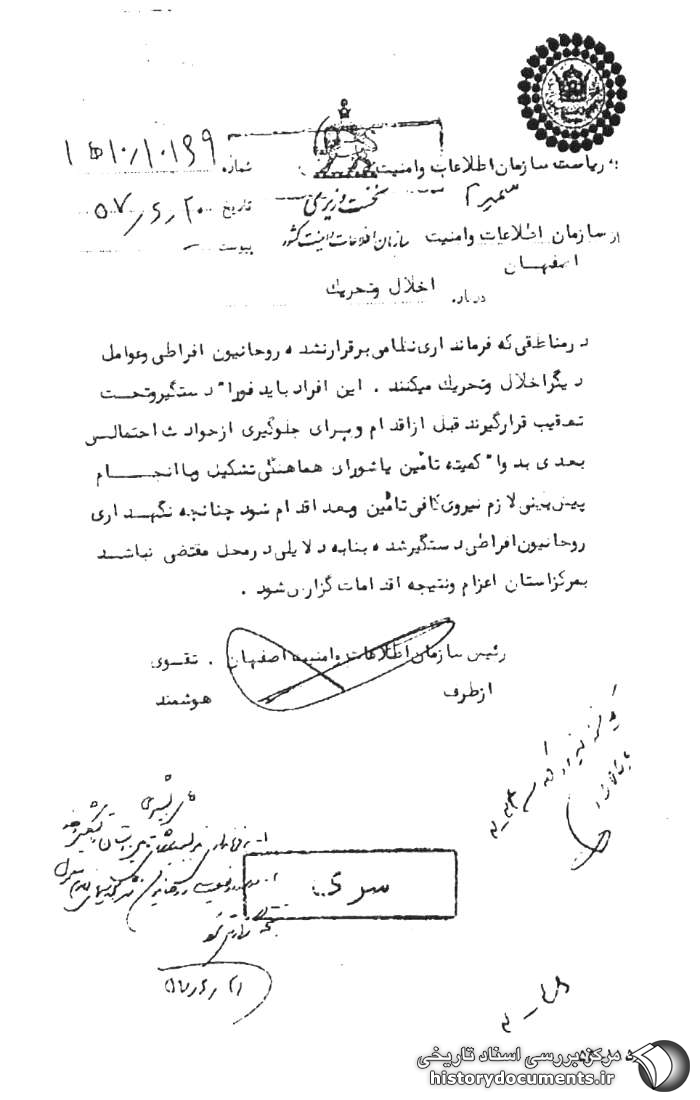 به ریاست سازمان اطلاعات وامنیت
سمیرم
نخست وزیری
شماره ۱۰۱۶۹/
تاریخ ۵۷/۶/۲۰
از سازمان اطلاعات وامنیت
اصفهان
سازمان اطلاعات و امنیت کشور
پیوست
درباره اخلال وتحریك
درمناطقی که فرمانداری نظامی برقرارنشده روحانیون افراطی وعوامل
دیگراخلال وتحریك میکنند . این افراد باید فورا" دستگیروتحت
تعقیب قرارگیرند قبل ازاقدام وبرای جلوگیری ازحوادث احتمالی
بعدی بدوا" کمیته تامین یاشورای هماهنگی تشکیل وباانجام
پیش بینی لازم نیروی کافی تامین وبعد اقدام شود چنانچه نگهداری
روحانیون افراطی دستگیرشده بنابه دلایلی درمحل مقتضی نباشد
بمرکزاستان اعزام ونتیجه اقدامات گزارش شود .
رئیس سازمان اطلاعات وامنیت اصفهان . تقوی
ازطرف هوشمند
سری
مرکز بررسی اسناد تاریخی
historydocuments.ir